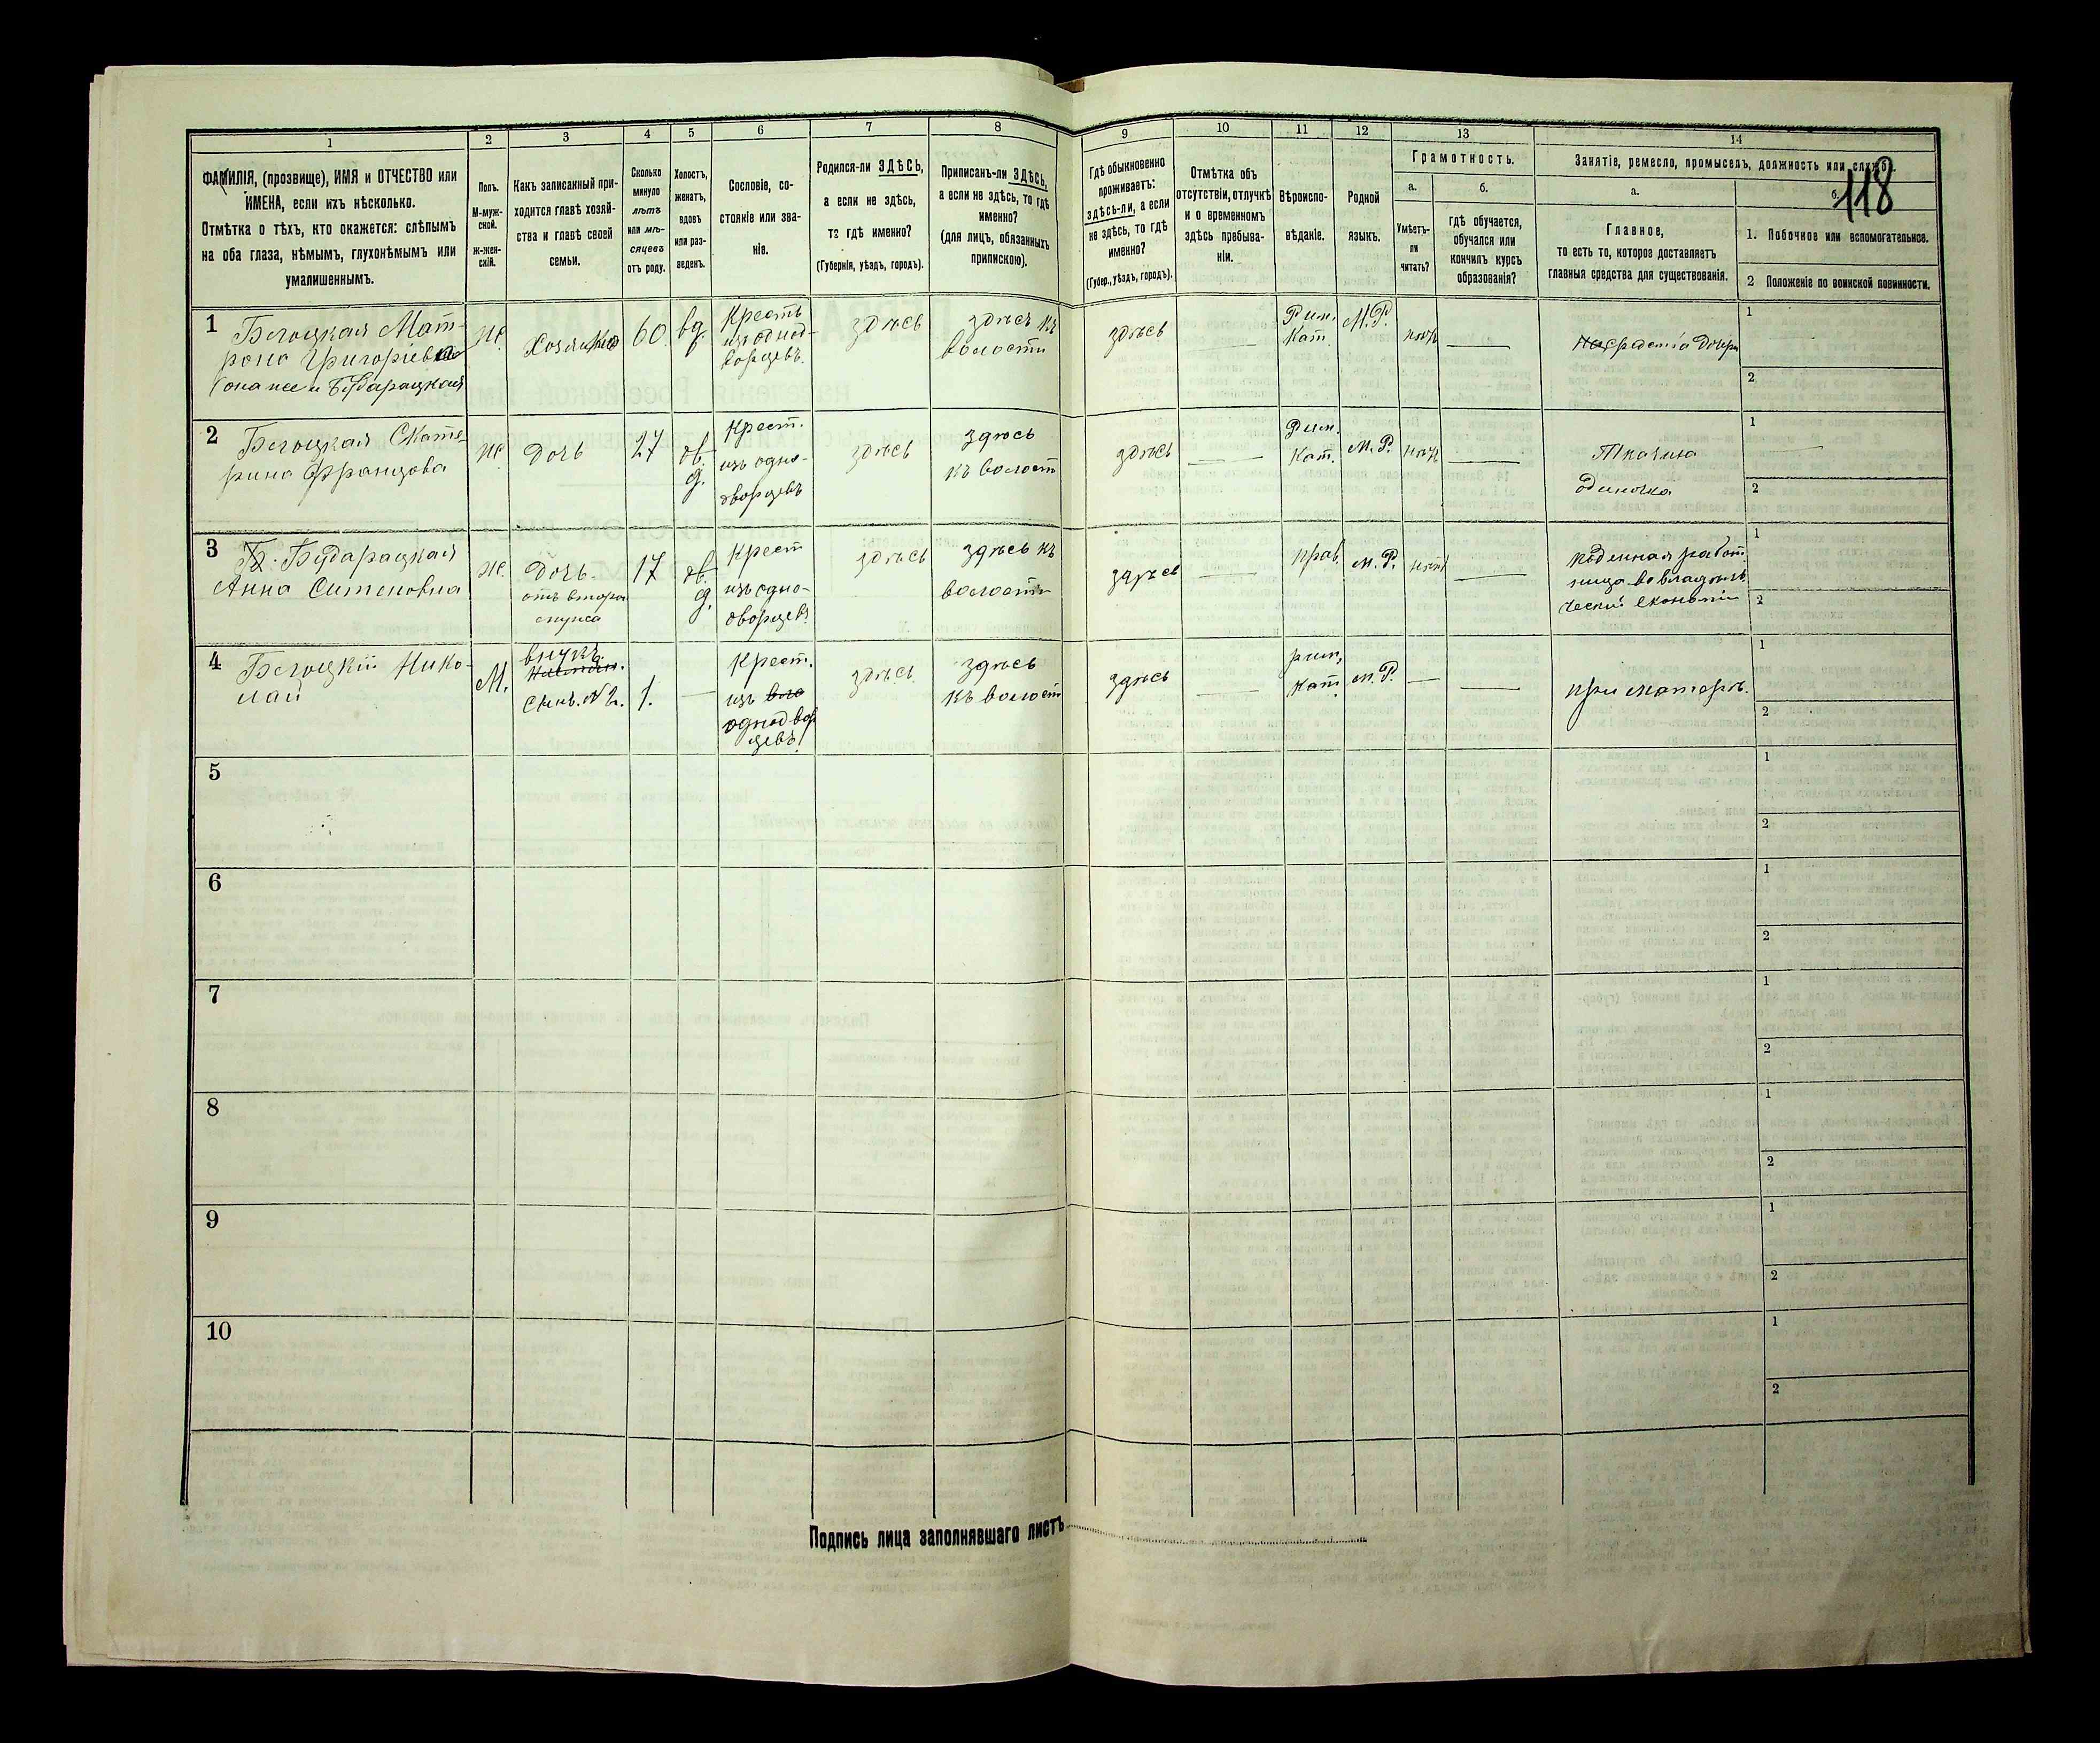 118
1
2
3
4
5
6
7
8
9
10
11
12
13
14
ФАМИЛІЯ, (прозвище), ИМЯ и ОТЧЕСТВО или
ИМЕНА, если ихъ нѣсколько.
Отмѣтка о тѣхъ, кто окажется: слѣпымъ
на оба глаза, нѣмымъ, глухонѣмымъ или
умалишеннымъ.
Полъ.
М-муж-
ской.
Ж-жен-
скій.
Какъ записанный при-
ходится главѣ хозяй-
ства и главѣ своей
семьи.
Сколько
минуло
лѣтъ
или мѣ-
сяцевъ
отъ роду.
Холостъ,
женатъ,
вдовъ
или раз-
веденъ.
Сословіе, со-
стояніе или зва-
ніе.
Родился-ли ЗДѢСЬ,
а если не здѣсь,
то гдѣ именно?
(Губернія, уѣздъ, городъ).
Приписанъ-ли ЗДѢСЬ,
а если не здѣсь, то гдѣ
именно?
(для лицъ, обязанныхъ
припискою).
Гдѣ обыкновенно
проживаетъ:
здѣсь-ли, а если
не здѣсь, то гдѣ
именно?
(Губер., уѣздъ, городъ).
Отмѣтка объ
отсутствіи, отлучкѣ
и о временномъ
здѣсь пребыва-
ніи.
Вѣроиспо-
вѣданіе.
Родной
языкъ.
Грамотность.
а.
Умѣетъ-
ли
читать?
б.
гдѣ обучается,
обучался или
кончилъ курсъ
образованія?
Занятіе, ремесло, промыселъ, должность или служба.
а.
Главное,
то есть то, которое доставляетъ
главныя средства для существованія.
б.
1. Побочное или вспомогательное.
2 Положеніе по воинской повинности.
1
Мат-
рона Григорьева
она же и Бударацкая
Ж.
Хозяйка
60
вд.
Крестъ
изъ однод-
ворцевъ.
здѣсь
здѣсь къ
волости
здѣсь
Рим.
Кат.
М.Р.
нѣтъ
дочери
1
2
2
Екате-
рина Францова
Ж.
Дочь
27
дѣ.
Крест.
изъ одно-
дворцевъ
здѣсь
здѣсь
къ волост
здѣсь
Рим.
Кат.
М.Р.
нѣтъ
Ткачиха
одиночка
1
2
3
Бударацкая
Анна
Ж.
Дочь.
17
дѣ.
Крест
изъ одно-
дворцевъ
здѣсь
здѣсь къ
волости
здѣсь
прав.
М.Р.
нѣтъ
поденная работ
ница во владѣль
ческой економіи
1
2
4
Нико-
лай
М.
внукъ.
Сынъ. N 2.
1.
Крест.
изъ
однодвор
цевъ.
здѣсь
здѣсь
къ волост
здѣсь
рим.
Кат
М.Р.
при матери.
1
2
5
1
2
6
1
2
7
1
2
8
1
2
9
1
2
10
1
2
Подпись лица заполнявшаго листъ